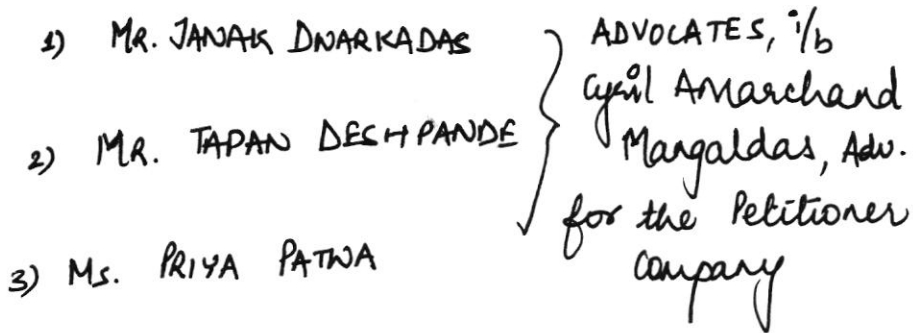 1) MR. JANAK DWARKADAS
2) MR. TAPAN DESHPANDE
3) Ms. PRIYA PATWA
ADVOCATES, i/b
Cyril Amarchand
Mangaldas, Adv.
for the Petitioner
Company